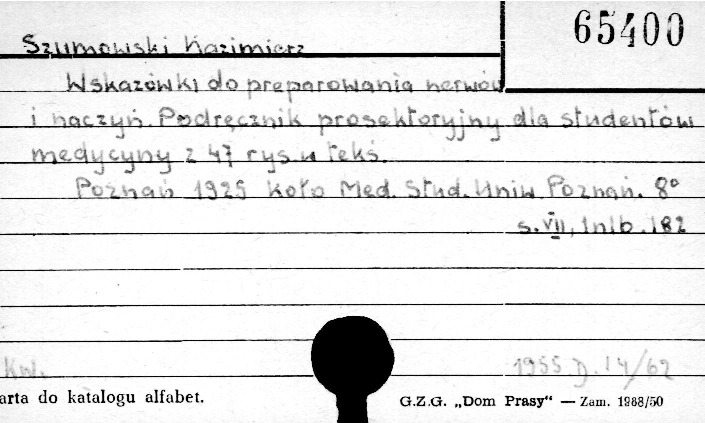 65400
Szumowski Kazimierz
Wskazówki do preparowania nerwów
i naczyń. Podręcznik prosektoryjny dla studentów
medycyny z 47 rys. w tekś.
Poznań 1925 Koło Med. Stud. Uniw. Poznań. 8°
s. VII, 1nlb. 182
Kw.
1955 D. 14/62
arta do katalogu alfabet.
G.Z.G. „Dom Prasy“ — Zam. 1988/50